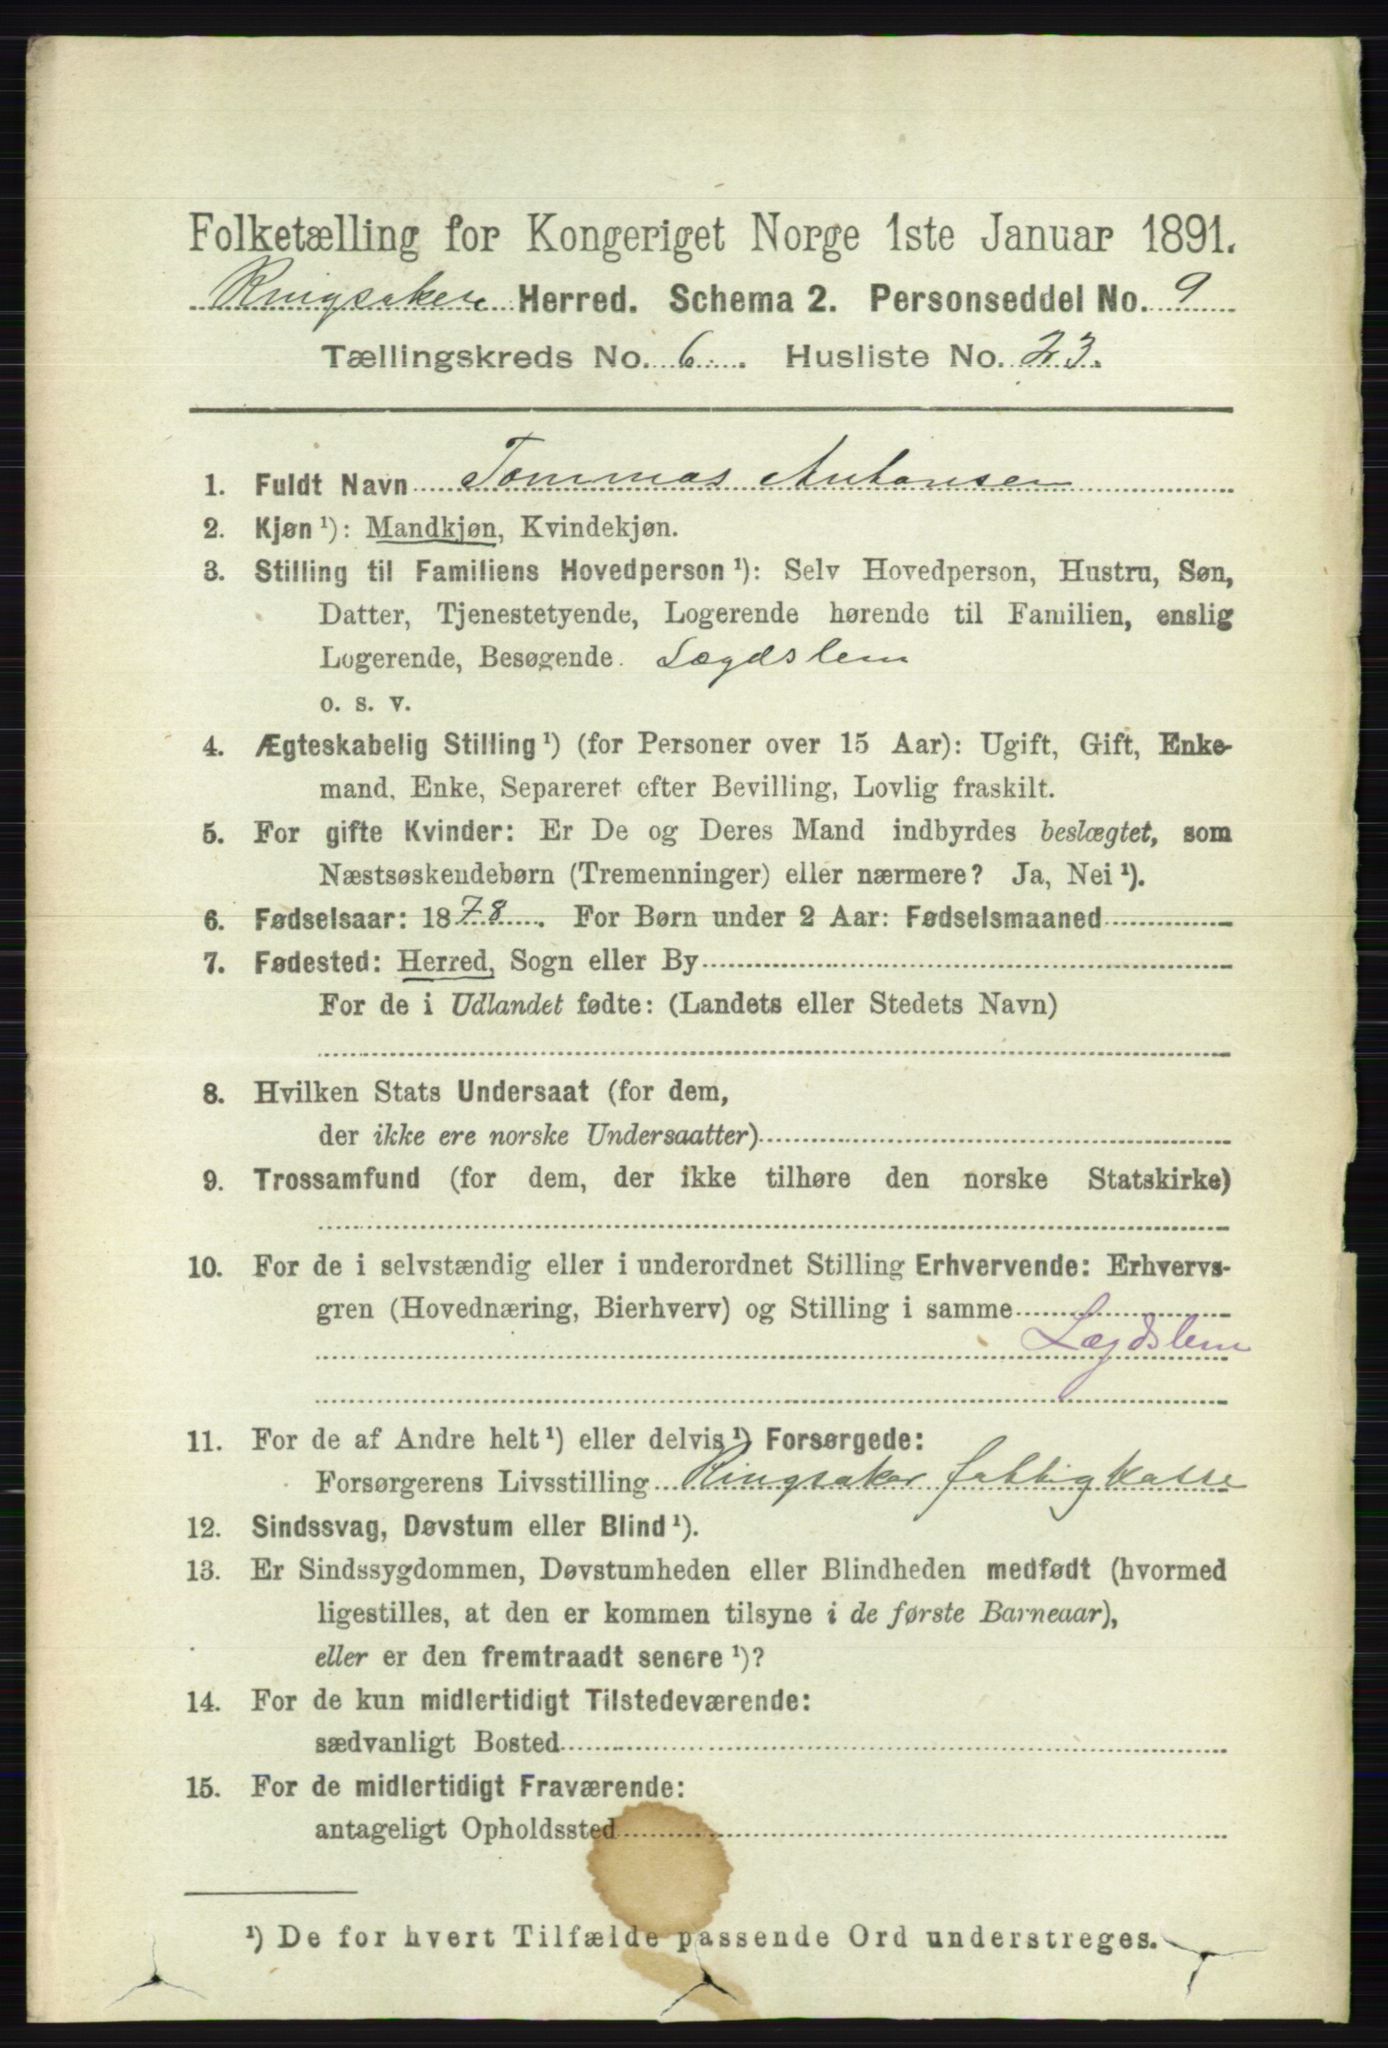 Folketælling for Kongeriget Norge 1ste Januar 1891.
Ringsaker Herred. Schema 2. Personseddel No. 9
Tællingskreds No. 6. Husliste No. 23.
1. Fuldt Navn Tommas Antonsen
2. Kjøn ¹): Mandkjøn, Kvindekjøn.
3. Stilling til Familiens Hovedperson ¹): Selv Hovedperson, Hustru, Søn,
Datter, Tjenestetyende, Logerende hørende til Familien, enslig
Logerende, Besøgende. Lægdslem
o. s. v.
4. Ægteskabelig Stilling ¹) (for Personer over 15 Aar): Ugift, Gift, Enke-
mand, Enke, Separeret efter Bevilling, Lovlig fraskilt.
5. For gifte Kvinder: Er De og Deres Mand indbyrdes beslægtet, som
Næstsøskendebørn (Tremenninger) eller nærmere? Ja, Nei ¹).
6. Fødselsaar: 1878. For Børn under 2 Aar: Fødselsmaaned
7. Fødested: Herred, Sogn eller By
For de i Udlandet fødte: (Landets eller Stedets Navn)
8. Hvilken Stats Undersaat (for dem,
der ikke ere norske Undersaatter)
9. Trossamfund (for dem, der ikke tilhøre den norske Statskirke)
10. For de i selvstændig eller i underordnet Stilling Erhvervende: Erhvervs-
gren (Hovednæring, Bierhverv) og Stilling i samme
Lægdslem
11. For de af Andre helt ¹) eller delvis ¹) Forsørgede:
Forsørgerens Livsstilling Ringsaker fattigkasse
12. Sindssvag, Døvstum eller Blind ¹).
13. Er Sindssygdommen, Døvstumheden eller Blindheden medfødt (hvormed
ligestilles, at den er kommen tilsyne i de første Barneaar),
eller er den fremtraadt senere ¹)?
14. For de kun midlertidigt Tilstedeværende:
sædvanligt Bosted
15. For de midlertidigt Fraværende:
antageligt Opholdssted
¹) De for hvert Tilfælde passende Ord understreges.